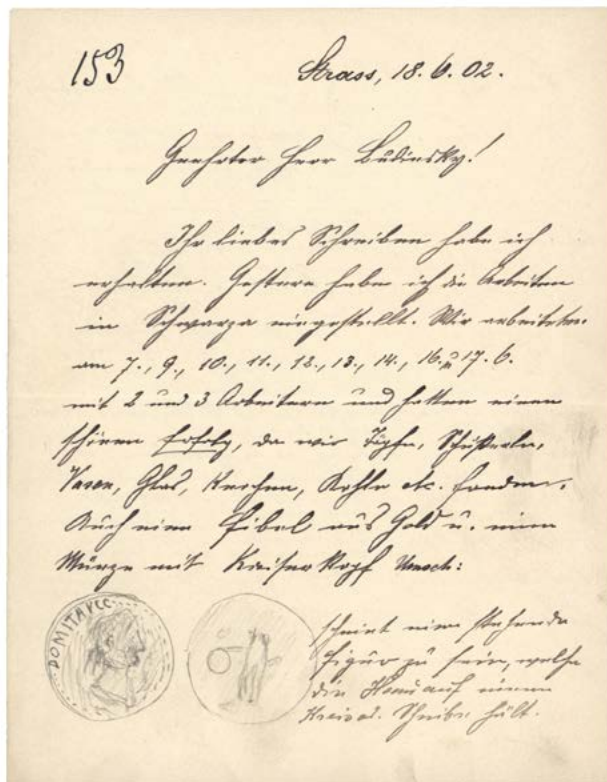 153
Strass, 18. 6. 02.
Geehrter Herr Budinsky!
Ihr liebes Schreiben habe ich
erhalten. Gestern habe ich die Arbeiten
in Schwarza eingestellt. Wir arbeiteten
am 7., 9., 10., 11., 12., 13., 14., 16. u 17. 6.
mit 2 und 3 Arbeitern und hatten einen
schönen Erfolg, da wir Töpfe, Schüsserln,
Vasen, Glas, Knochen, Kohle etc. fanden.
Auch eine Fibel aus Gold u. eine
Münze mit Kaiserkopf
DOMITA
scheint eine stehende
Figur zu sein, welche
die Hand auf einen
Kreis od. Scheibe hält.